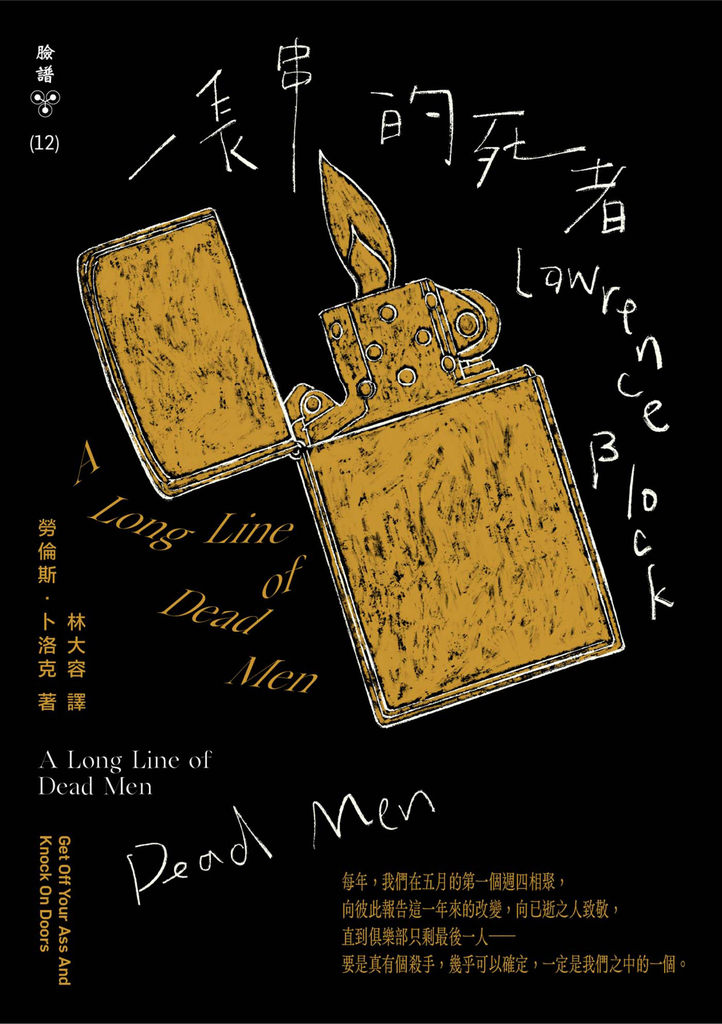 臉譜
(12)
一長串的死者
Lawrence Block
A
Long Line
of
Dead
Men
勞倫斯・卜洛克 著
林大容 譯
A Long Line of
Dead Men
Dead Men
Get Off Your Ass And
Knock On Doors
每年，我們在五月的第一個週四相聚，
向彼此報告這一年來的改變，向已逝之人致敬，
直到俱樂部只剩最後一人——
要是真有個殺手，幾乎可以確定，一定是我們之中的一個。